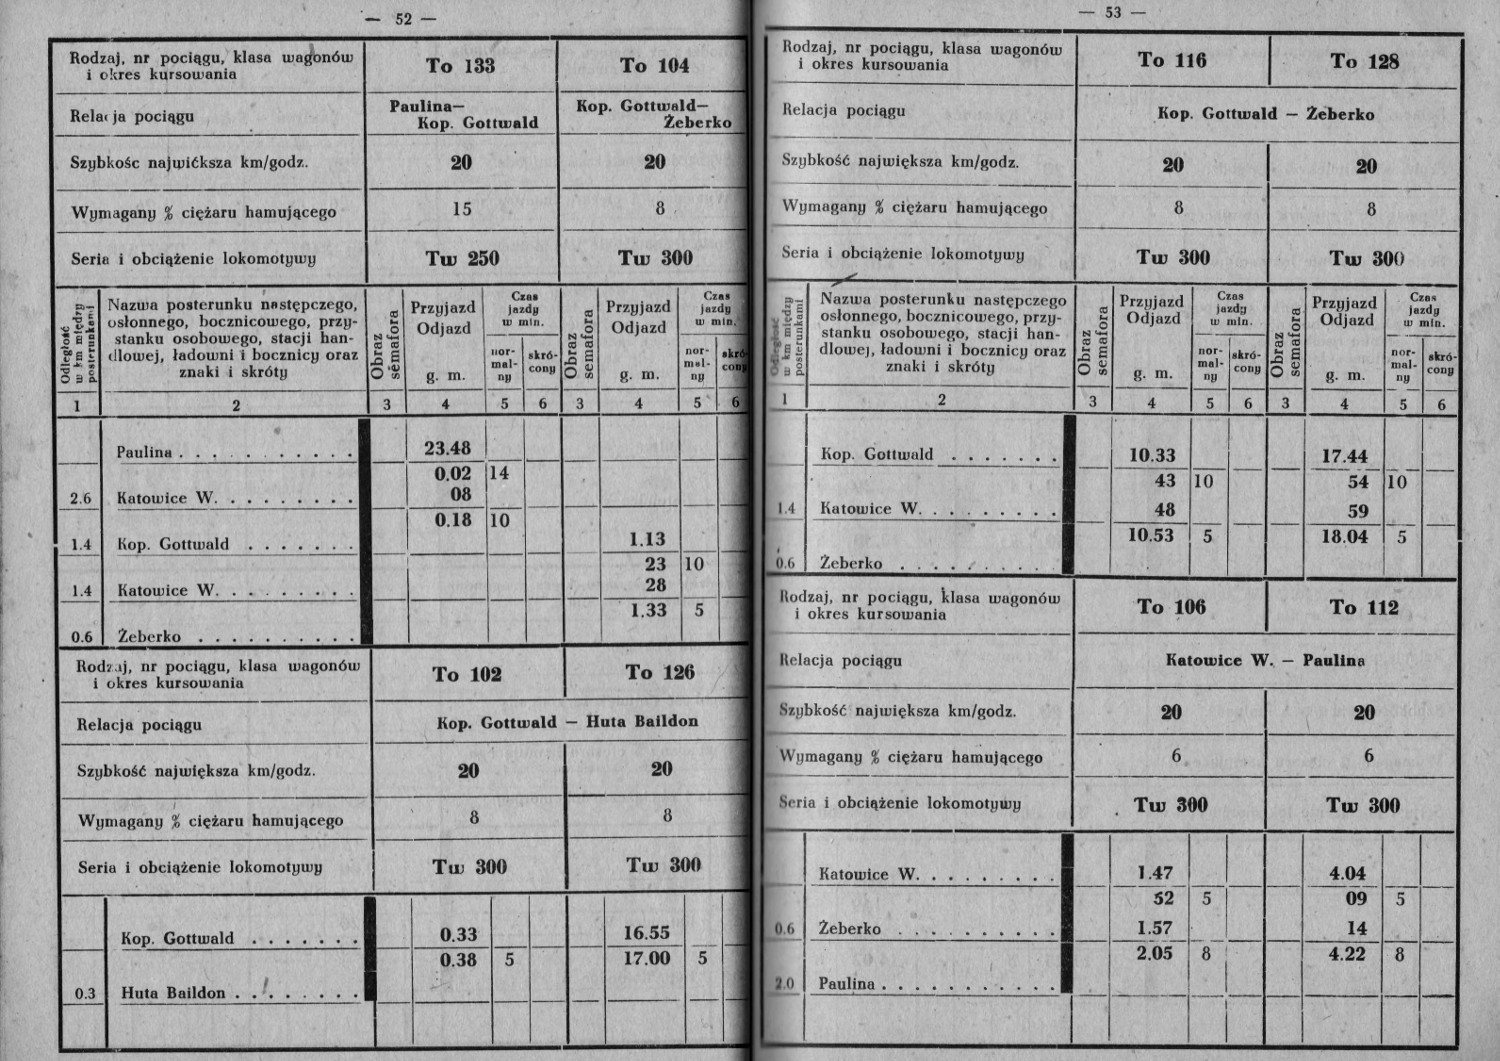 — 52 —
Rodzaj, nr pociągu, klasa wagonów
i okres kursowania
To 133
To 104
Relacja pociągu
Paulina—
Kop. Gottwald
Kop. Gottwald—
Żeberko
Szybkośc najwićksza km/godz.
20
20
Wymagany % ciężaru hamującego
15
8
Seria i obciążenie lokomotywy
Tw 250
Tw 300
Odległość
w km między
posterunkami
Nazwa posterunku następczego,
osłonnego, bocznicowego, przy-
stanku osobowego, stacji han-
dlowej, ładowni i bocznicy oraz
znaki i skróty
Obraz
semafora
Przyjazd
Odjazd
g. m.
Czas
jazdy
w min.
nor-
mal-
ny
skró-
cony
Obraz
semafora
Przyjazd
Odjazd
g. m.
Czas
jazdy
w min.
nor-
mal-
ny
skró-
cony
1 2 3 4 5 6 3 4 5 6
Paulina . . . . . . . . . . . 23.48
0.02 14
2.6 Katowice W. . . . . . . . . 08
0.18 10
1.4 Kop. Gottwald . . . . . . . 1.13
23 10
1.4 Katowice W. . . . . . . . . 28
1.33 5
0.6 Żeberko . . . . . . . . . .
Rodzaj, nr pociągu, klasa wagonów
i okres kursowania
To 102
To 126
Relacja pociągu
Kop. Gottwald — Huta Baildon
Szybkość największa km/godz.
20
20
Wymagany % ciężaru hamującego
8
8
Seria i obciążenie lokomotywy
Tw 300
Tw 300
Kop. Gottwald . . . . . . . 0.33 16.55
0.38 5 17.00 5
0.3 Huta Baildon . . . . . . . .
— 53 —
Rodzaj, nr pociągu, klasa wagonów
i okres kursowania
To 116
To 128
Relacja pociągu
Kop. Gottwald — Żeberko
Szybkość największa km/godz.
20
20
Wymagany % ciężaru hamującego
8
8
Seria i obciążenie lokomotywy
Tw 300
Tw 300
Odległość
w km między
posterunkami
Nazwa posterunku następczego
osłonnego, bocznicowego, przy-
stanku osobowego, stacji han-
dlowej, ładowni i bocznicy oraz
znaki i skróty
Obraz
semafora
Przyjazd
Odjazd
g. m.
Czas
jazdy
w min.
nor-
mal-
ny
skró-
cony
Obraz
semafora
Przyjazd
Odjazd
g. m.
Czas
jazdy
w min.
nor-
mal-
ny
skró-
cony
1 2 3 4 5 6 3 4 5 6
Kop. Gottwald . . . . . . . 10.33 17.44
43 10 54 10
1.4 Katowice W. . . . . . . . . 48 59
10.53 5 18.04 5
0.6 Żeberko . . . . . . . . . .
Rodzaj, nr pociągu, klasa wagonów
i okres kursowania
To 106
To 112
Relacja pociągu
Katowice W. — Paulina
Szybkość największa km/godz.
20
20
Wymagany % ciężaru hamującego
6
6
Seria i obciążenie lokomotywy
Tw 300
Tw 300
Katowice W. . . . . . . . . 1.47 4.04
52 5 09 5
0.6 Żeberko . . . . . . . . . . 1.57 14
2.05 8 4.22 8
2.0 Paulina . . . . . . . . . . .